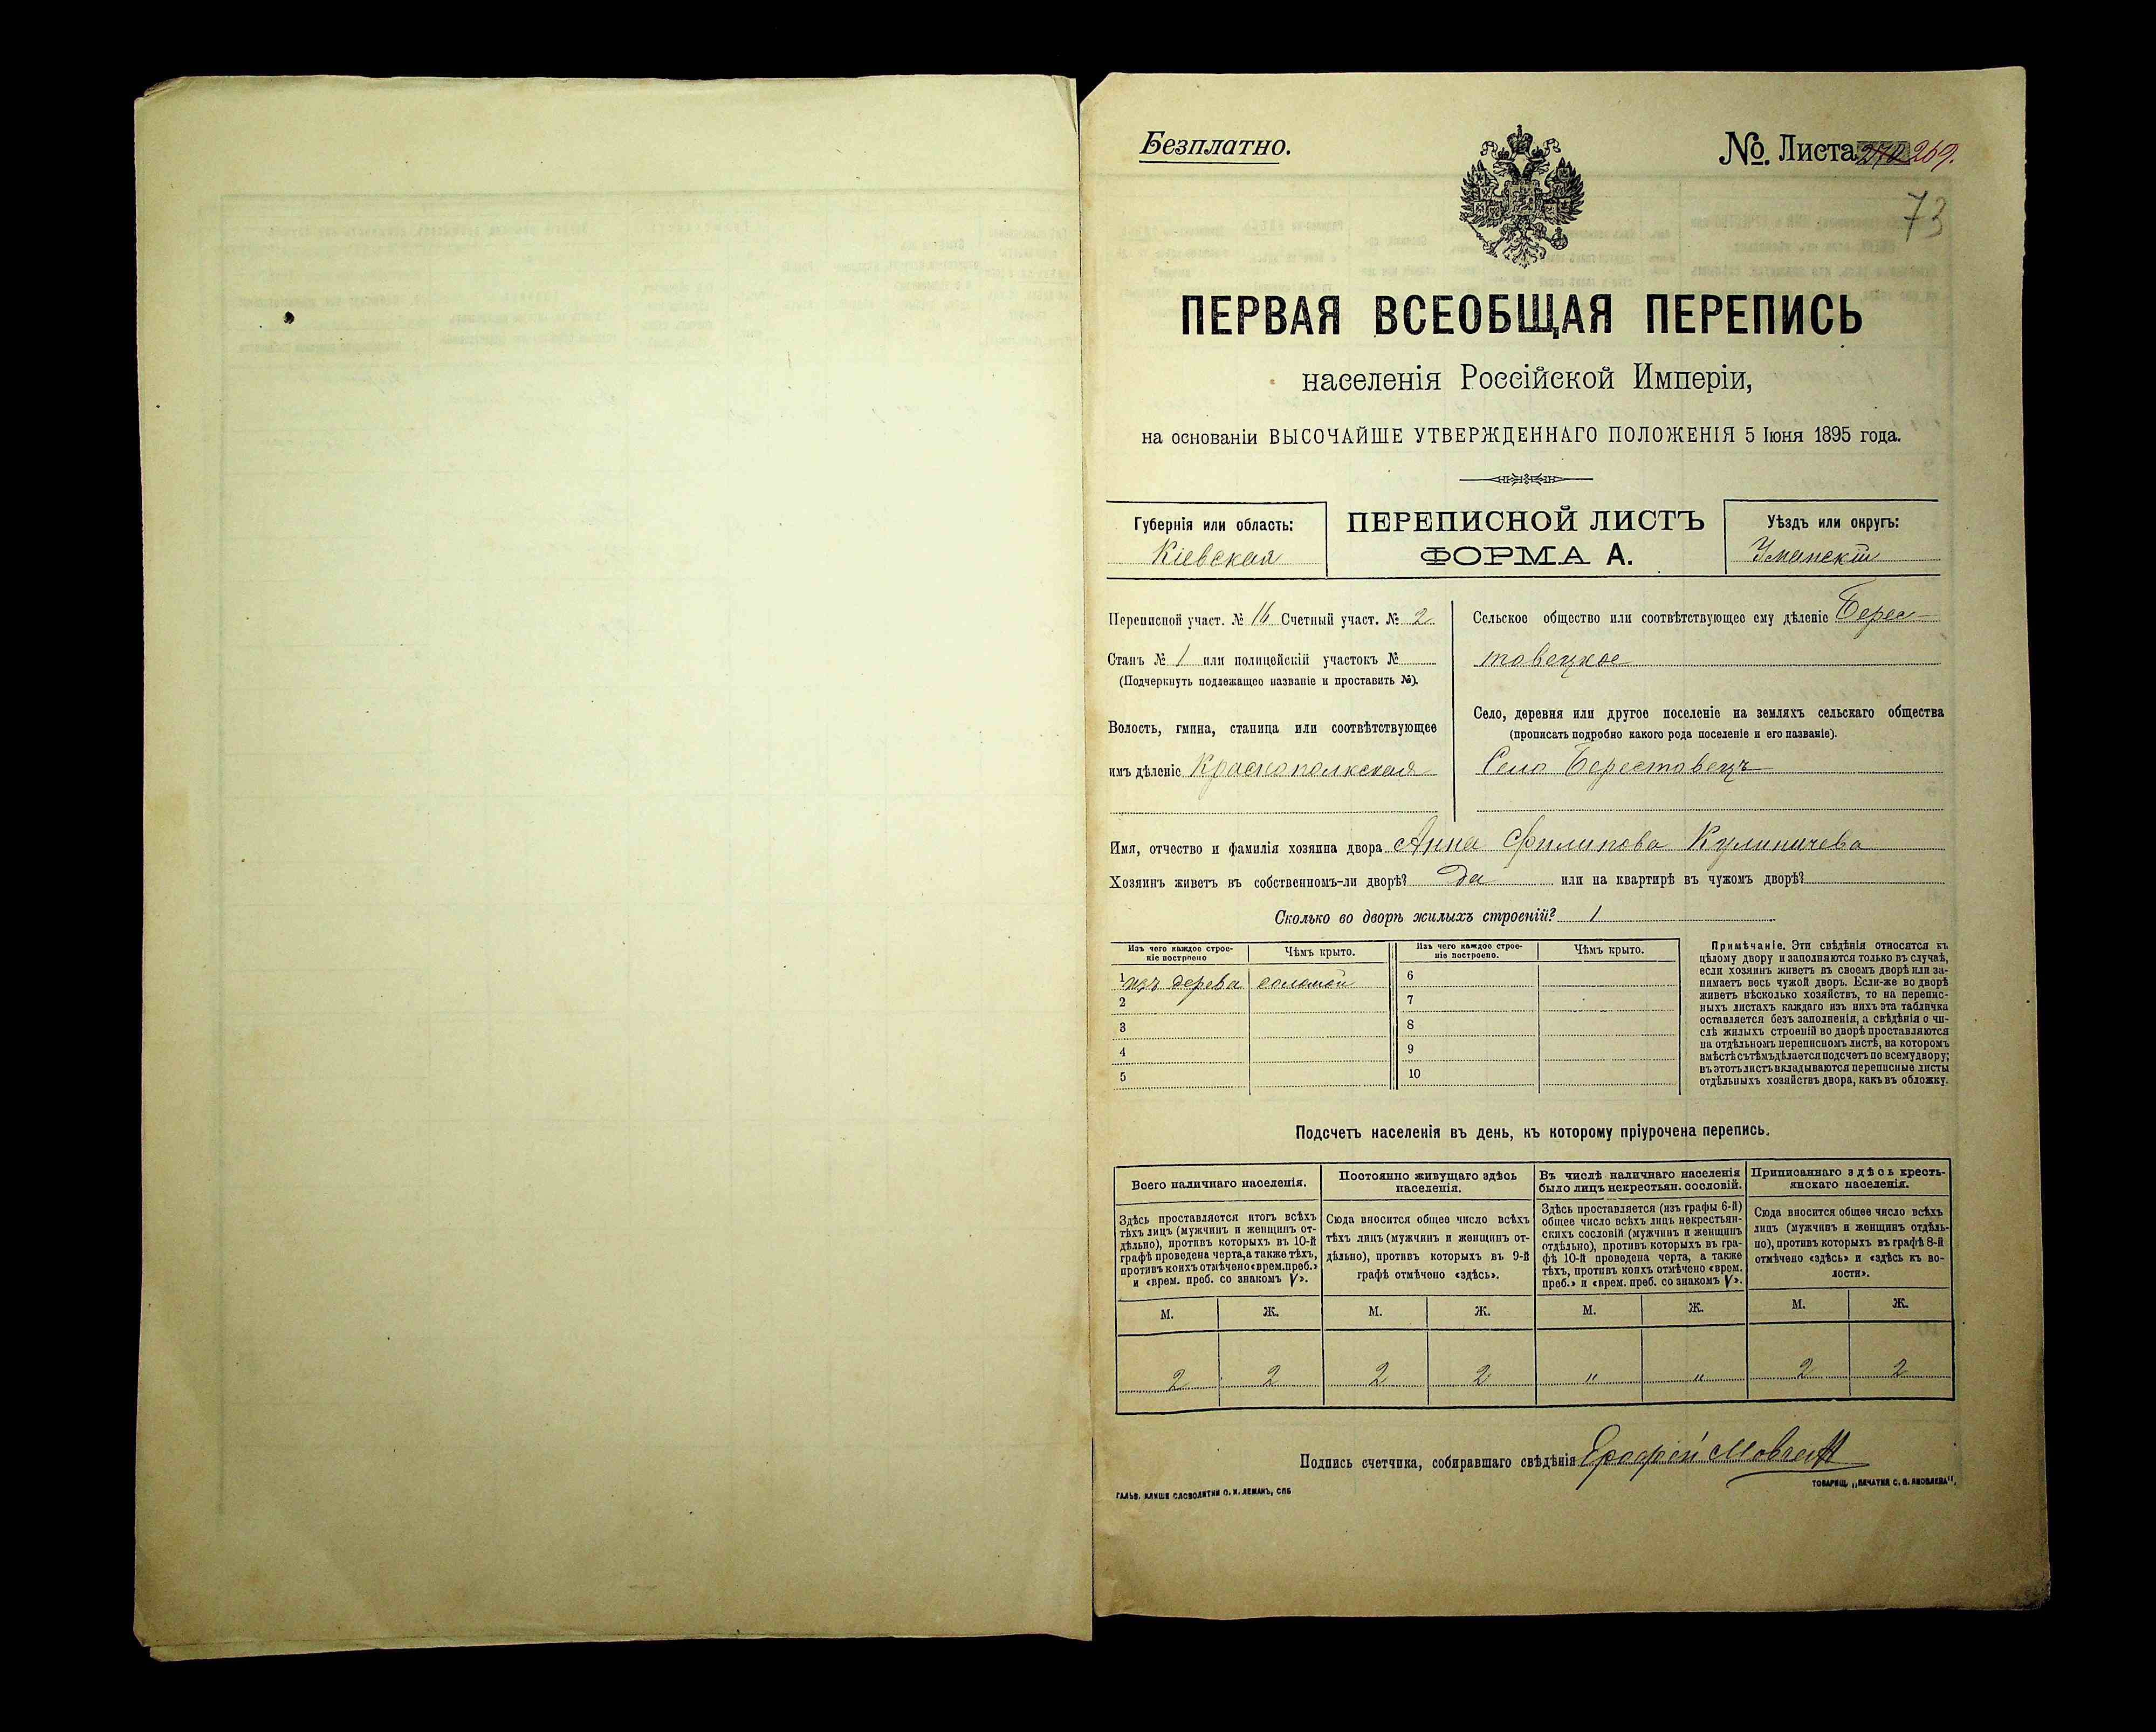 Безплатно.
№. Листа 270 269.
73
ПЕРВАЯ ВСЕОБЩАЯ ПЕРЕПИСЬ
населенія Россійской Имперіи,
на основаніи ВЫСОЧАЙШЕ УТВЕРЖДЕННАГО ПОЛОЖЕНІЯ 5 Іюня 1895 года.
Губернія или область:
Кіевская
ПЕРЕПИСНОЙ ЛИСТЪ
ФОРМА А.
Уѣздъ или округъ:
Уманскій
Переписной участ. № 16 Счетный участ. № 2
Станъ № 1 или полицейскій участокъ №
(Подчеркнуть подлежащее названіе и проставить №).
Волость, гмина, станица или соотвѣтствующее
имъ дѣленіе Краснополкская
Сельское общество или соотвѣтствующее ему дѣленіе Берес-
товецкое
Село, деревня или другое поселеніе на земляхъ сельскаго общества
(прописать подробно какого рода поселеніе и его названіе).
Село Берестовецъ
Имя, отчество и фамилія хозяина двора Анна Филипова Кулиничева
Хозяинъ живетъ въ собственномъ-ли дворѣ? да или на квартирѣ въ чужомъ дворѣ?
Сколько во дворѣ жилыхъ строеній? 1
Изъ чего каждое строе-
ніе построено
Чѣмъ крыто.
Изъ чего каждое строе-
ніе построено.
Чѣмъ крыто.
1 изъ дерева соломой
2
3
4
5
6
7
8
9
10
Примѣчаніе. Эти свѣдѣнія относятся къ
цѣлому двору и заполняются только въ случаѣ,
если хозяинъ живетъ въ своемъ дворѣ или за-
нимаетъ весь чужой дворъ. Если-же во дворѣ
живетъ нѣсколько хозяйствъ, то на перепис-
ныхъ листахъ каждаго изъ нихъ эта табличка
оставляется безъ заполненія, а свѣдѣнія о чи-
слѣ жилыхъ строеній во дворѣ проставляются
на отдѣльномъ переписномъ листѣ, на которомъ
вмѣстѣ съ тѣмъ дѣлается подсчетъ по всему двору;
въ этотъ листъ вкладываются переписные листы
отдѣльныхъ хозяйствъ двора, какъ въ обложку.
Подсчетъ населенія въ день, къ которому пріурочена перепись.
Всего наличнаго населенія.
Здѣсь проставляется итогъ всѣхъ
тѣхъ лицъ (мужчинъ и женщинъ от-
дѣльно), противъ которыхъ въ 10-й
графѣ проведена черта, а также тѣхъ,
противъ коихъ отмѣчено «врем. преб.»
и «врем. преб. со знакомъ V».
Постоянно живущаго здѣсь
населенія.
Сюда вносится общее число всѣхъ
тѣхъ лицъ (мужчинъ и женщинъ от-
дѣльно), противъ которыхъ въ 9-й
графѣ отмѣчено «здѣсь».
Въ числѣ наличнаго населенія
было лицъ некрестьян. сословій.
Здѣсь проставляется (изъ графы 6-й)
общее число всѣхъ лицъ некрестьян-
скихъ сословій (мужчинъ и женщинъ
отдѣльно), противъ которыхъ въ гра-
фѣ 10-й проведена черта, а также
тѣхъ, противъ коихъ отмѣчено «врем.
преб.» и «врем. преб. со знакомъ V».
Приписаннаго здѣсь кресть-
янскаго населенія.
Сюда вносится общее число всѣхъ
лицъ (мужчинъ и женщинъ отдѣль-
но), противъ которыхъ въ графѣ 8-й
отмѣчено «здѣсь» и «здѣсь къ во-
лости».
М. Ж. М. Ж. М. Ж. М. Ж.
2 2 2 2 " " 2 2
Подпись счетчика, собиравшаго свѣдѣнія Ерофей Мовчан
ГАЛЬВ. КЛИШЕ СЛОВОЛИТНИ О. И. ЛЕМАНЪ, СПБ
ТОВАРИЩ. „ПЕЧАТНЯ С. П. ЯКОВЛЕВА".